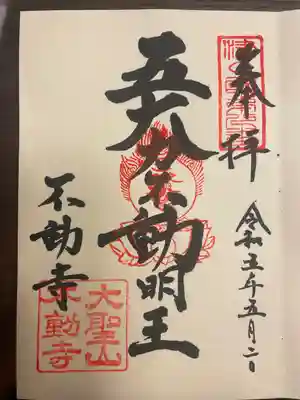 奉拝
令和五年五月二日
五大力不動明王
不動寺
大聖山
不動寺